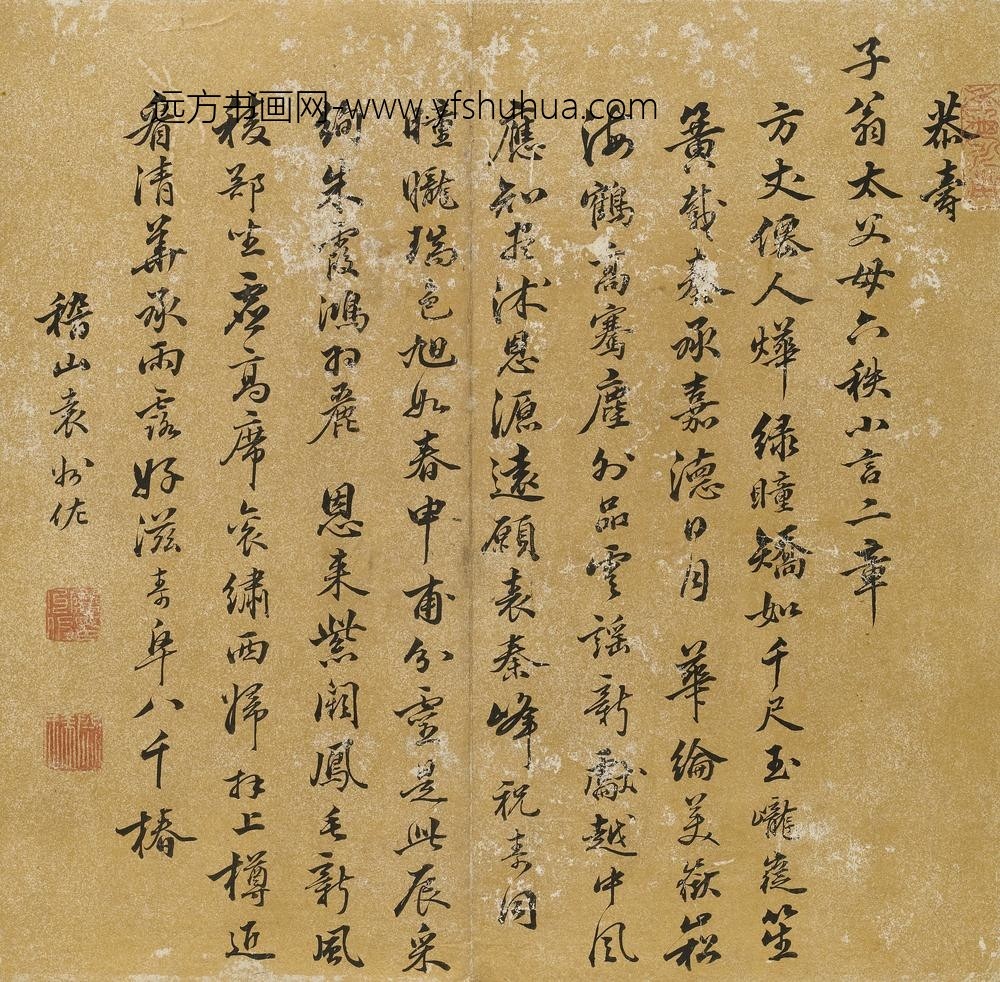 恭壽
子翁太父母六秩小言二章
方丈僊人燁綠瞳矯如千尺玉巃嵸笙
簧載奏承嘉德日月華綸美嶽崧
海鶴高騫塵外品雲謠新獻越中風
應知投沭恩源遠願袁秦峰祝壽同
曈曨瑞色旭如春申甫分靈是此辰采
絢朱霞鴻羽麗恩來紫闕鳳毛新風
稜郄坐虛高席袞繡西歸拜上樽近
看清華承雨露好滋壽阜八千椿
稽山袁州佐
远方书画网-www.yfshuhua.com